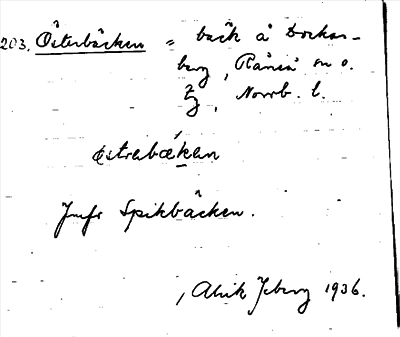 203. Österbäcken = bäck å Dockas-
berg, Råneå sn o.
tg, Norrb. l.
østrebækan
Jmfr Spikbäcken.
, Alrik Isberg 1936.